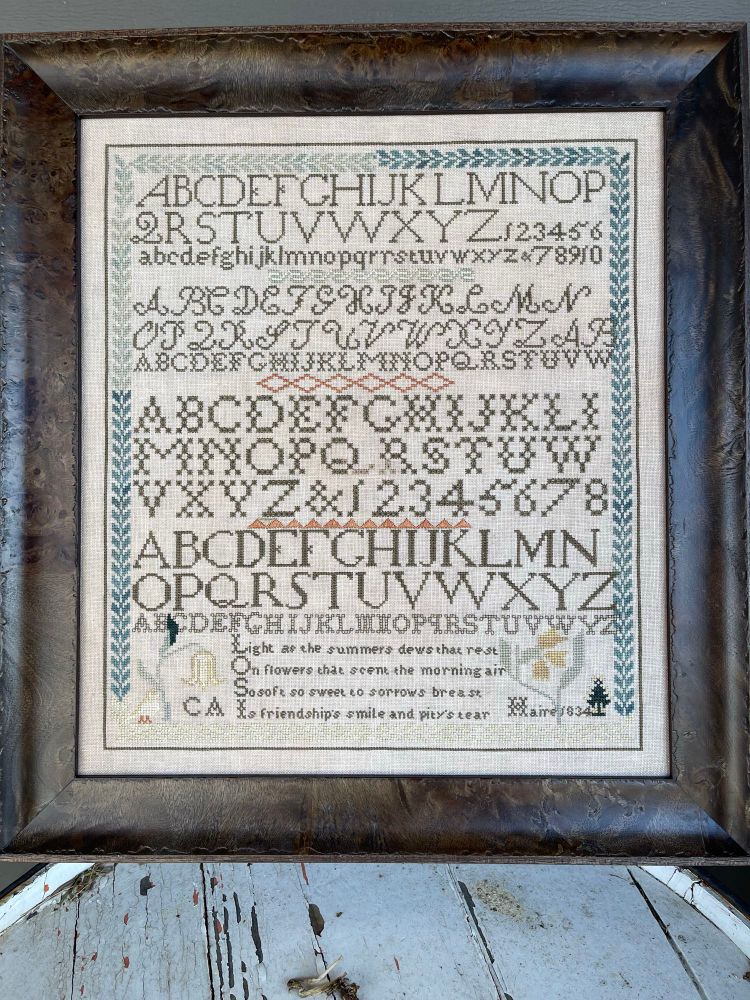 ABCDEFGHIJKLMNOP
QRSTUVWXYZ 123456
abcdefghijklmnopqrrstuvwxyz&78910
ABCDEFGHIJKLMN
OPQRSTUVWXYZAB
ABCDEFGHIJKLMNOPQRSTUVW
ABCDEFGHIJKLI
MNOPQRSTUW
VXYZ&12345678
ABCDEFGHIJKLMN
OPQRSTUVWXYZ
ABCDEFGHIJKLMNOPqRSTUVWXYZ
Light as the summers dews that rest
On flowers that scent the morning air
So soft so sweet to sorrows breast
CA Is friendship's smile and pity's tear Haire 1834